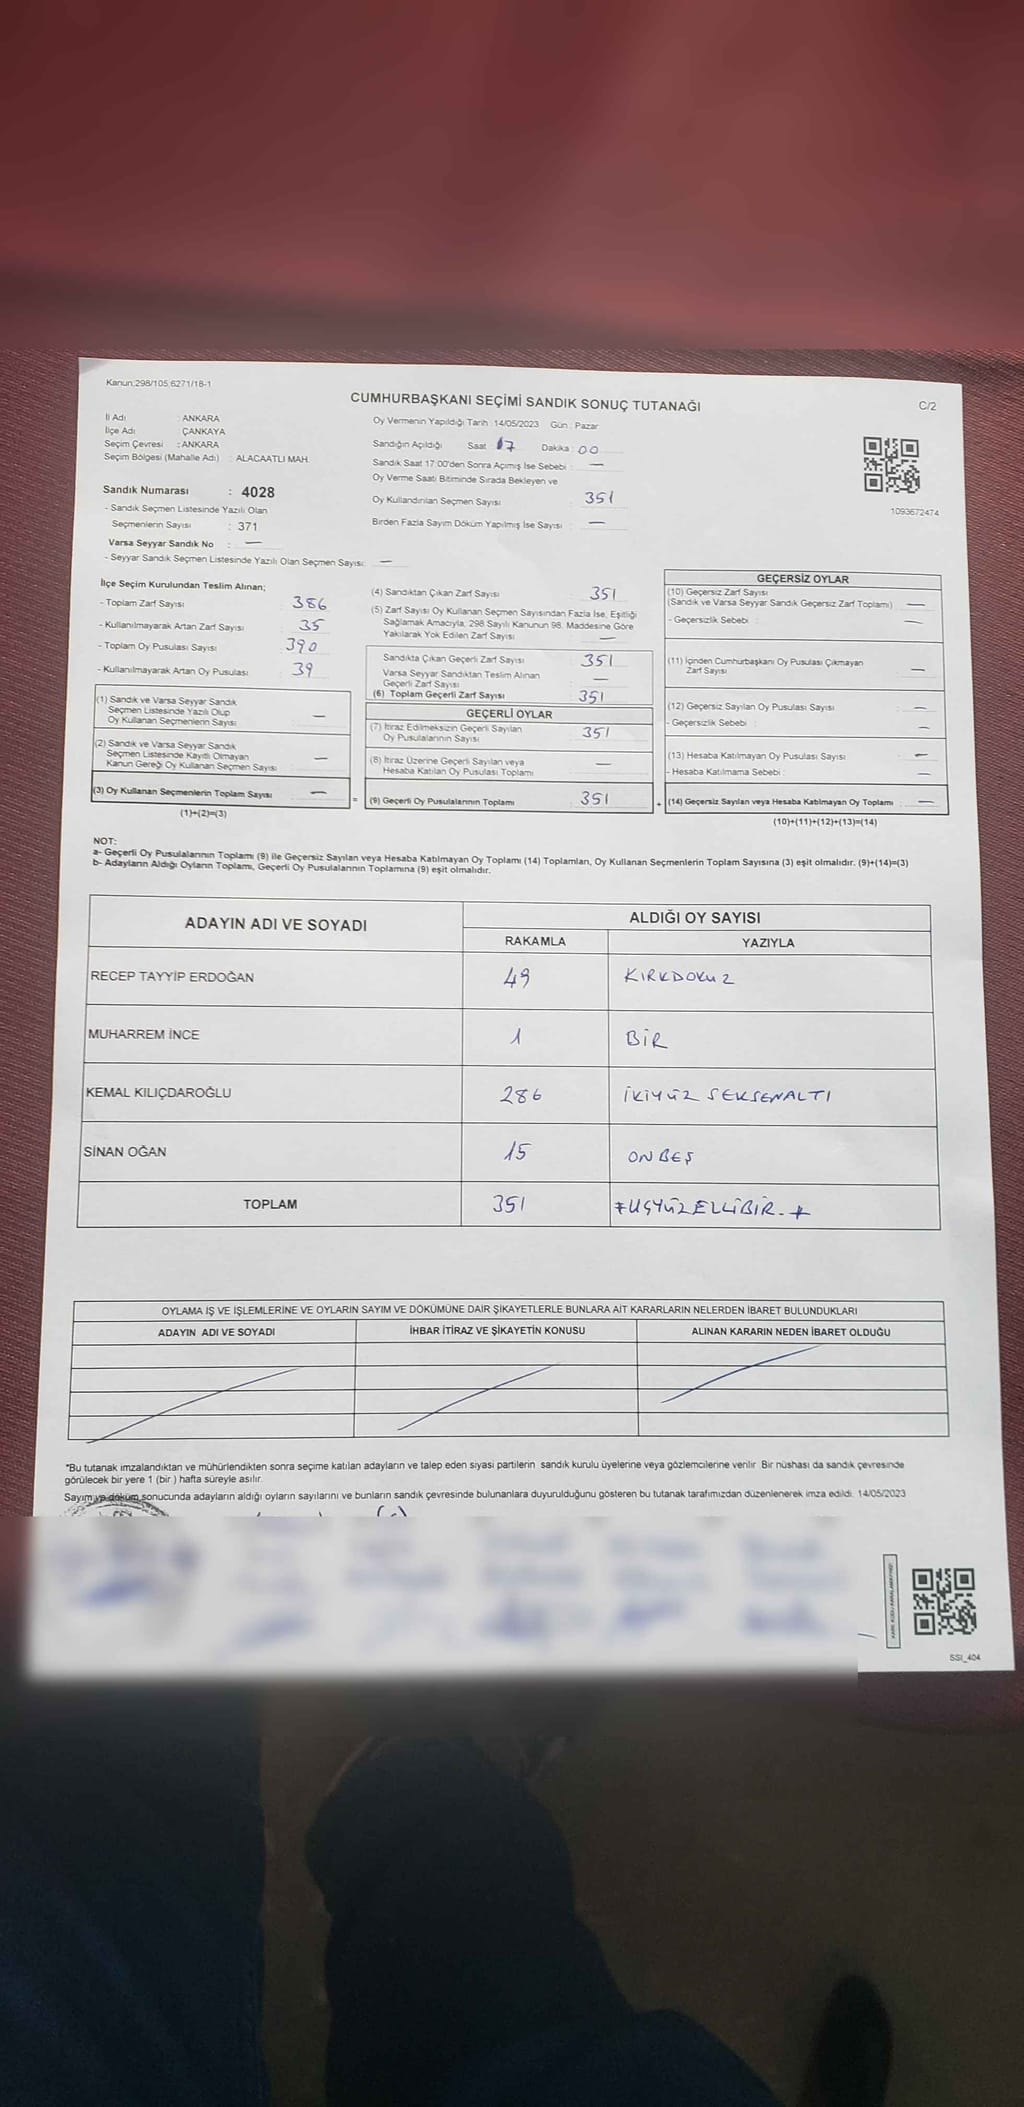 Kanun;298/105,6271/18-1
CUMHURBAŞKANI SEÇİMİ SANDIK SONUÇ TUTANAĞI
C/2
İl Adı : ANKARA
İlçe Adı : ÇANKAYA
Seçim Çevresi : ANKARA
Seçim Bölgesi (Mahalle Adı) : ALACAATLI MAH.
Sandık Numarası : 4028
- Sandık Seçmen Listesinde Yazılı Olan
Seçmenlerin Sayısı : 371
Varsa Seyyar Sandık No : —
- Seyyar Sandık Seçmen Listesinde Yazılı Olan Seçmen Sayısı: —
Oy Vermenin Yapıldığı Tarih : 14/05/2023 Gün : Pazar
Sandığın Açıldığı Saat 17 Dakika : 00
Sandık Saat 17:00'den Sonra Açımış İse Sebebi : —
Oy Verme Saati Bitiminde Sırada Bekleyen ve
Oy Kullandırılan Seçmen Sayısı : 351
Birden Fazla Sayım Döküm Yapılmış İse Sayısı : —
1093672474
İlçe Seçim Kurulundan Teslim Alınan;
- Toplam Zarf Sayısı : 386
- Kullanılmayarak Artan Zarf Sayısı : 35
- Toplam Oy Pusulası Sayısı : 390
- Kullanılmayarak Artan Oy Pusulası : 39
(1) Sandık ve Varsa Seyyar Sandık
Seçmen Listesinde Yazılı Olup
Oy Kullanan Seçmenlerin Sayısı : —
(2) Sandık ve Varsa Seyyar Sandık
Seçmen Listesinde Kayıtlı Olmayan
Kanun Gereği Oy Kullanan Seçmen Sayısı : —
(3) Oy Kullanan Seçmenlerin Toplam Sayısı : —
(1)+(2)=(3)
(4) Sandıktan Çıkan Zarf Sayısı : 351
(5) Zarf Sayısı Oy Kullanan Seçmen Sayısından Fazla İse, Eşitliği
Sağlamak Amacıyla, 298 Sayılı Kanunun 98. Maddesine Göre
Yakılarak Yok Edilen Zarf Sayısı : —
Sandıkta Çıkan Geçerli Zarf Sayısı : 351
Varsa Seyyar Sandıktan Teslim Alınan
Geçerli Zarf Sayısı : —
(6) Toplam Geçerli Zarf Sayısı : 351
GEÇERLİ OYLAR
(7) İtiraz Edilmeksizin Geçerli Sayılan
Oy Pusulalarının Sayısı : 351
(8) İtiraz Üzerine Geçerli Sayılan veya
Hesaba Katılan Oy Pusulası Toplamı : —
= (9) Geçerli Oy Pusulalarının Toplamı : 351
GEÇERSİZ OYLAR
(10) Geçersiz Zarf Sayısı
(Sandık ve Varsa Seyyar Sandık Geçersiz Zarf Toplamı) : —
- Geçersizlik Sebebi : —
(11) İçinden Cumhurbaşkanı Oy Pusulası Çıkmayan
Zarf Sayısı : —
(12) Geçersiz Sayılan Oy Pusulası Sayısı : —
- Geçersizlik Sebebi : —
(13) Hesaba Katılmayan Oy Pusulası Sayısı : —
- Hesaba Katılmama Sebebi : —
+ (14) Geçersiz Sayılan veya Hesaba Katılmayan Oy Toplamı : —
(10)+(11)+(12)+(13)=(14)
NOT:
a- Geçerli Oy Pusulalarının Toplamı (9) ile Geçersiz Sayılan veya Hesaba Katılmayan Oy Toplamı (14) Toplamları, Oy Kullanan Seçmenlerin Toplam Sayısına (3) eşit olmalıdır. (9)+(14)=(3)
b- Adayların Aldığı Oyların Toplamı, Geçerli Oy Pusulalarının Toplamına (9) eşit olmalıdır.
ADAYIN ADI VE SOYADI
ALDIĞI OY SAYISI
RAKAMLA YAZIYLA
RECEP TAYYİP ERDOĞAN 49 KIRKDOKUZ
MUHARREM İNCE 1 BİR
KEMAL KILIÇDAROĞLU 286 İKİYÜZ SEKSENALTI
SİNAN OĞAN 15 ONBEŞ
TOPLAM 351 #ÜÇYÜZELLİBİR.#
OYLAMA İŞ VE İŞLEMLERİNE VE OYLARIN SAYIM VE DÖKÜMÜNE DAİR ŞİKAYETLERLE BUNLARA AİT KARARLARIN NELERDEN İBARET BULUNDUKLARI
ADAYIN ADI VE SOYADI İHBAR İTİRAZ VE ŞİKAYETİN KONUSU ALINAN KARARIN NEDEN İBARET OLDUĞU
*Bu tutanak imzalandıktan ve mühürlendikten sonra seçime katılan adayların ve talep eden siyasi partilerin sandık kurulu üyelerine veya gözlemcilerine verilir. Bir nüshası da sandık çevresinde
görülecek bir yere 1 (bir ) hafta süreyle asılır.
Sayım ve döküm sonucunda adayların aldığı oyların sayılarını ve bunların sandık çevresinde bulunanlara duyurulduğunu gösteren bu tutanak tarafımızdan düzenlenerek imza edildi. 14/05/2023
SSI_404